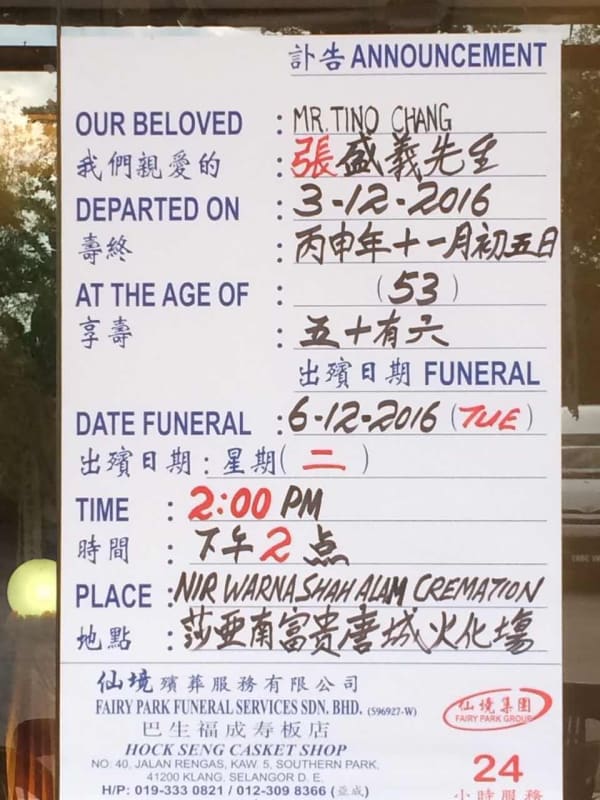 訃告 ANNOUNCEMENT
OUR BELOVED : MR. TINO CHANG
我們親愛的 : 張盛義先生
DEPARTED ON : 3-12-2016
壽終 : 丙申年十一月初五日
AT THE AGE OF : (53)
享壽 : 五十有六
出殯日期 FUNERAL
DATE FUNERAL : 6-12-2016 (TUE)
出殯日期 : 星期(二)
TIME : 2:00 PM
時間 : 下午2点
PLACE : NIRWARNA SHAH ALAM CREMATION
地點 : 莎亜南富贵唐城火化塲
仙境殯葬服務有限公司
FAIRY PARK FUNERAL SERVICES SDN. BHD. (596927-W)
巴生福成寿板店
HOCK SENG CASKET SHOP
NO. 40, JALAN RENGAS, KAW. 5, SOUTHERN PARK,
41200 KLANG. SELANGOR D. E.
H/P: 019-333 0821 / 012-309 8366 (亞成)
仙境集團
FAIRY PARK GROUP
24
小時服務